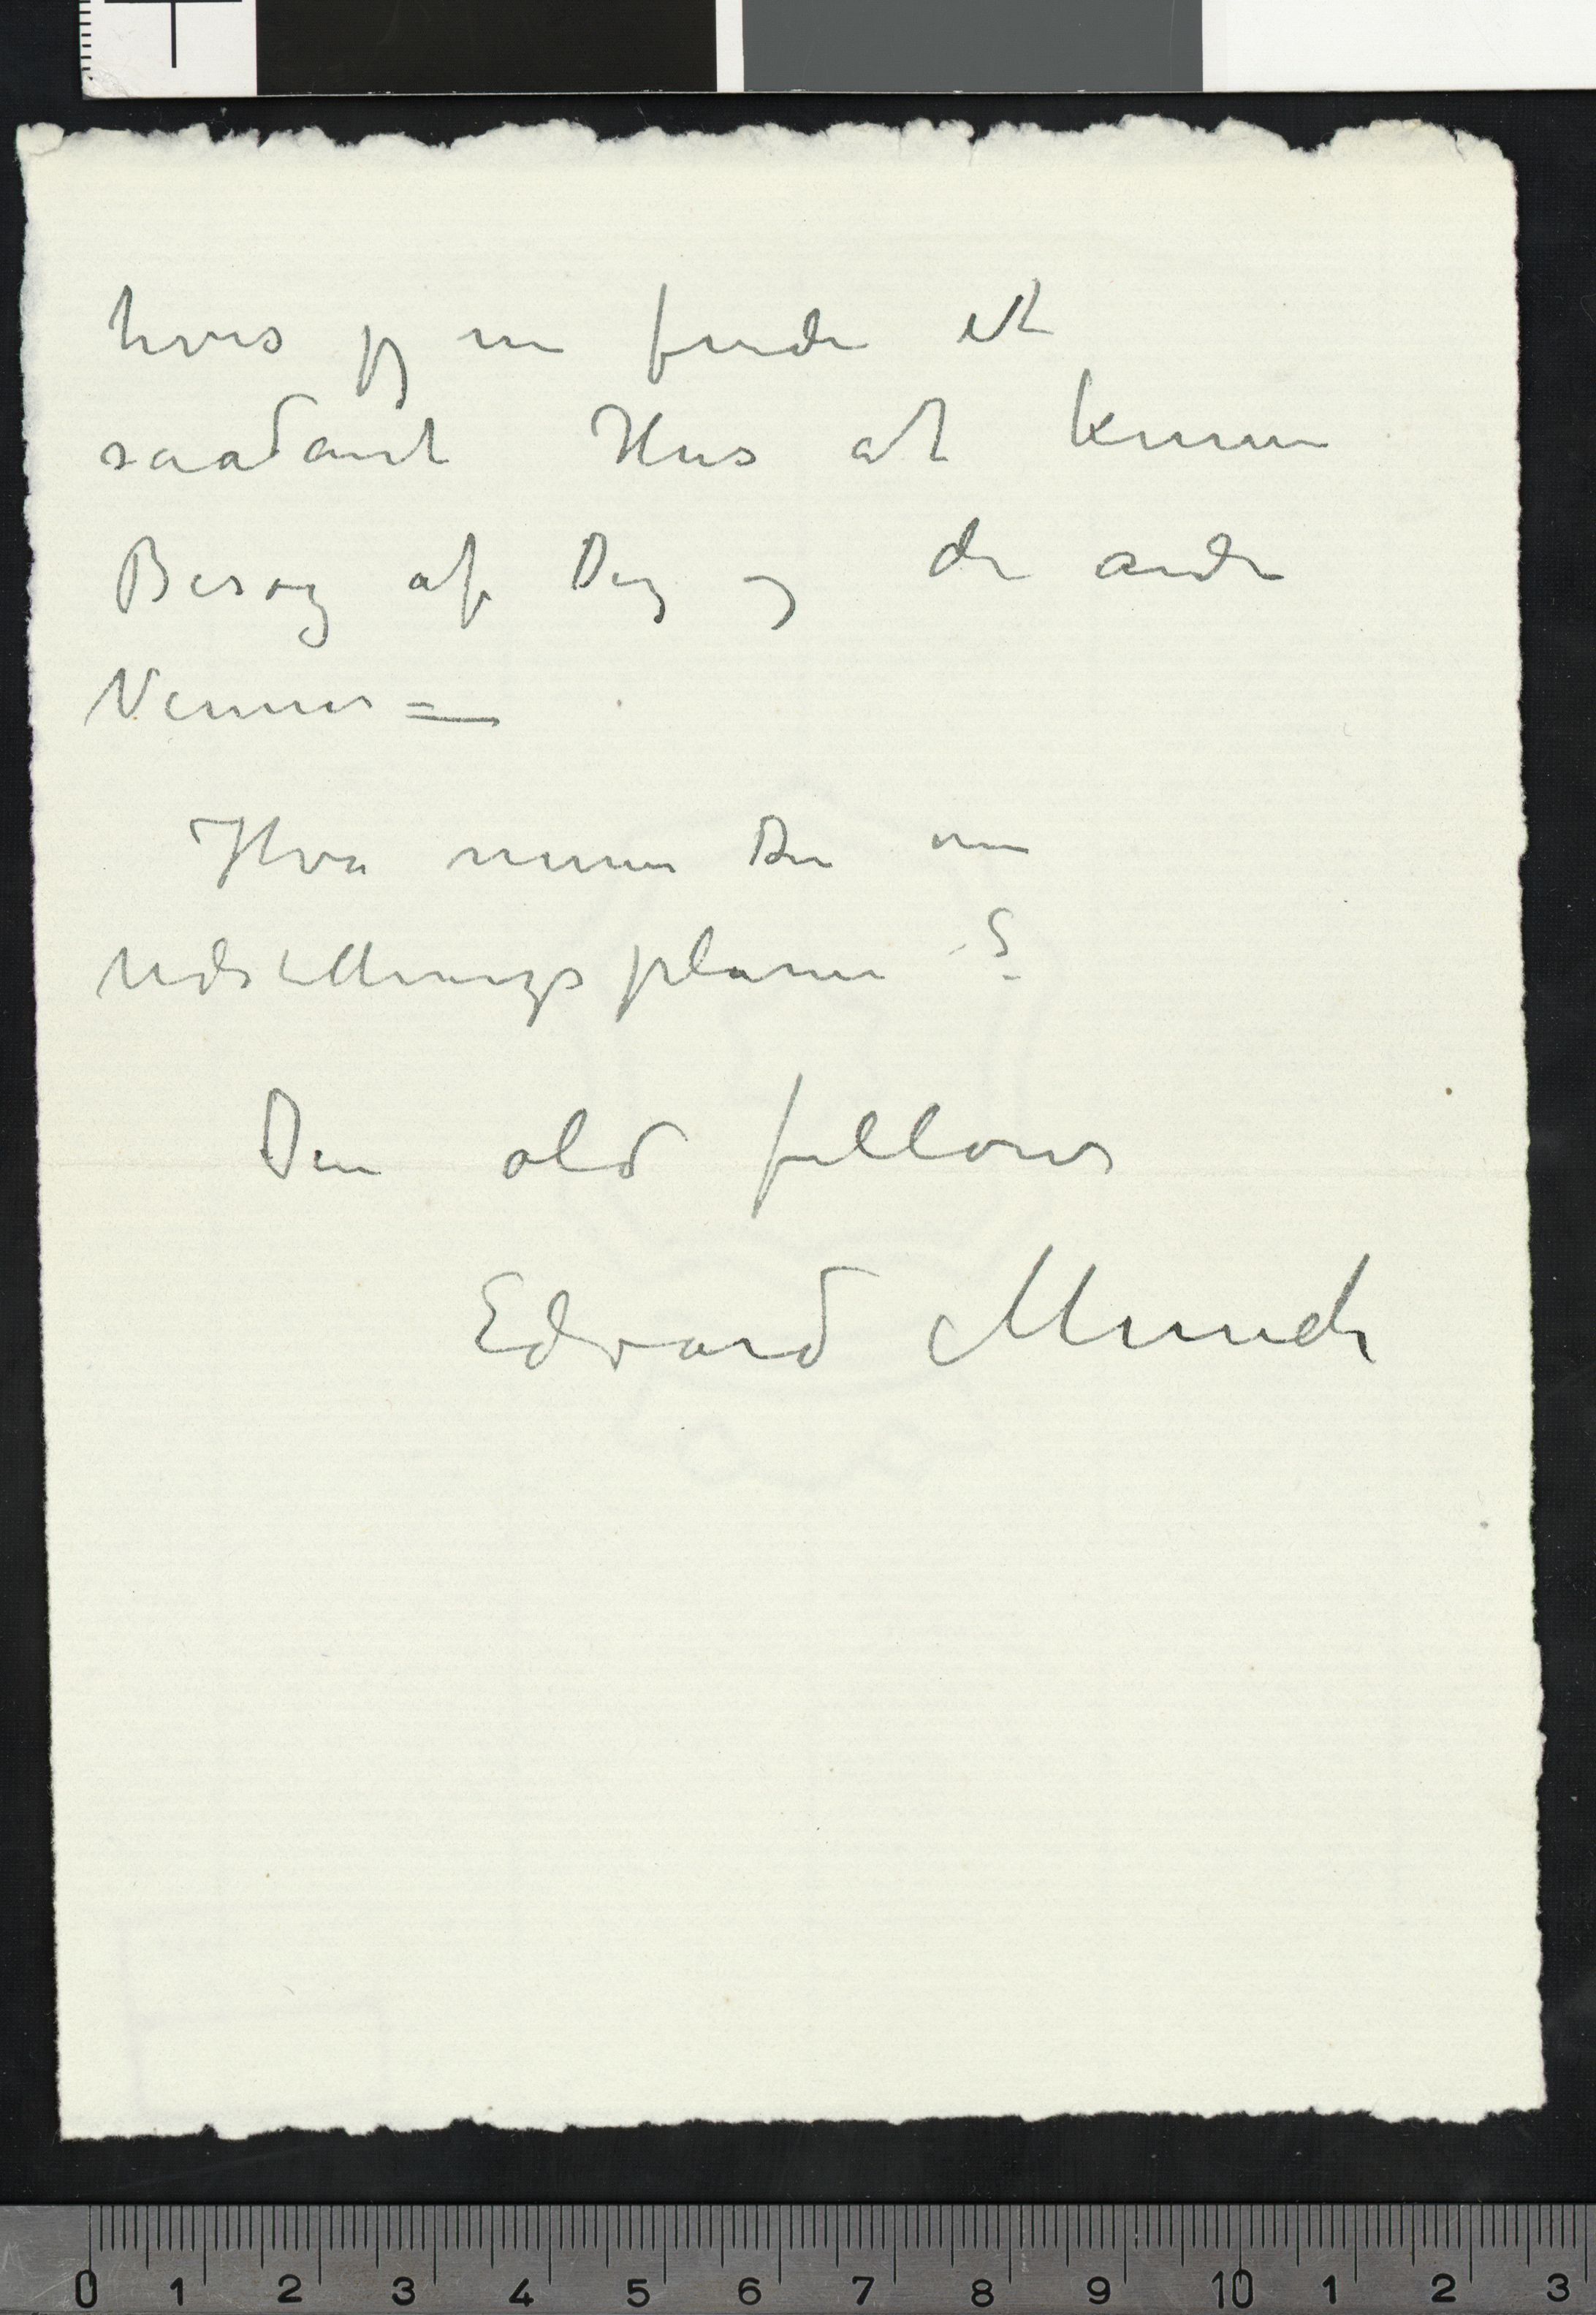 hvis jeg nu finder et
saadant Hus at kunne
Besøg af Deg og de andre
Venner =
Hva mener Du om
Udstillingsplanen ?
Din old fellows
Edvard Munch
0 1 2 3 4 5 6 7 8 9 10 1 2 3